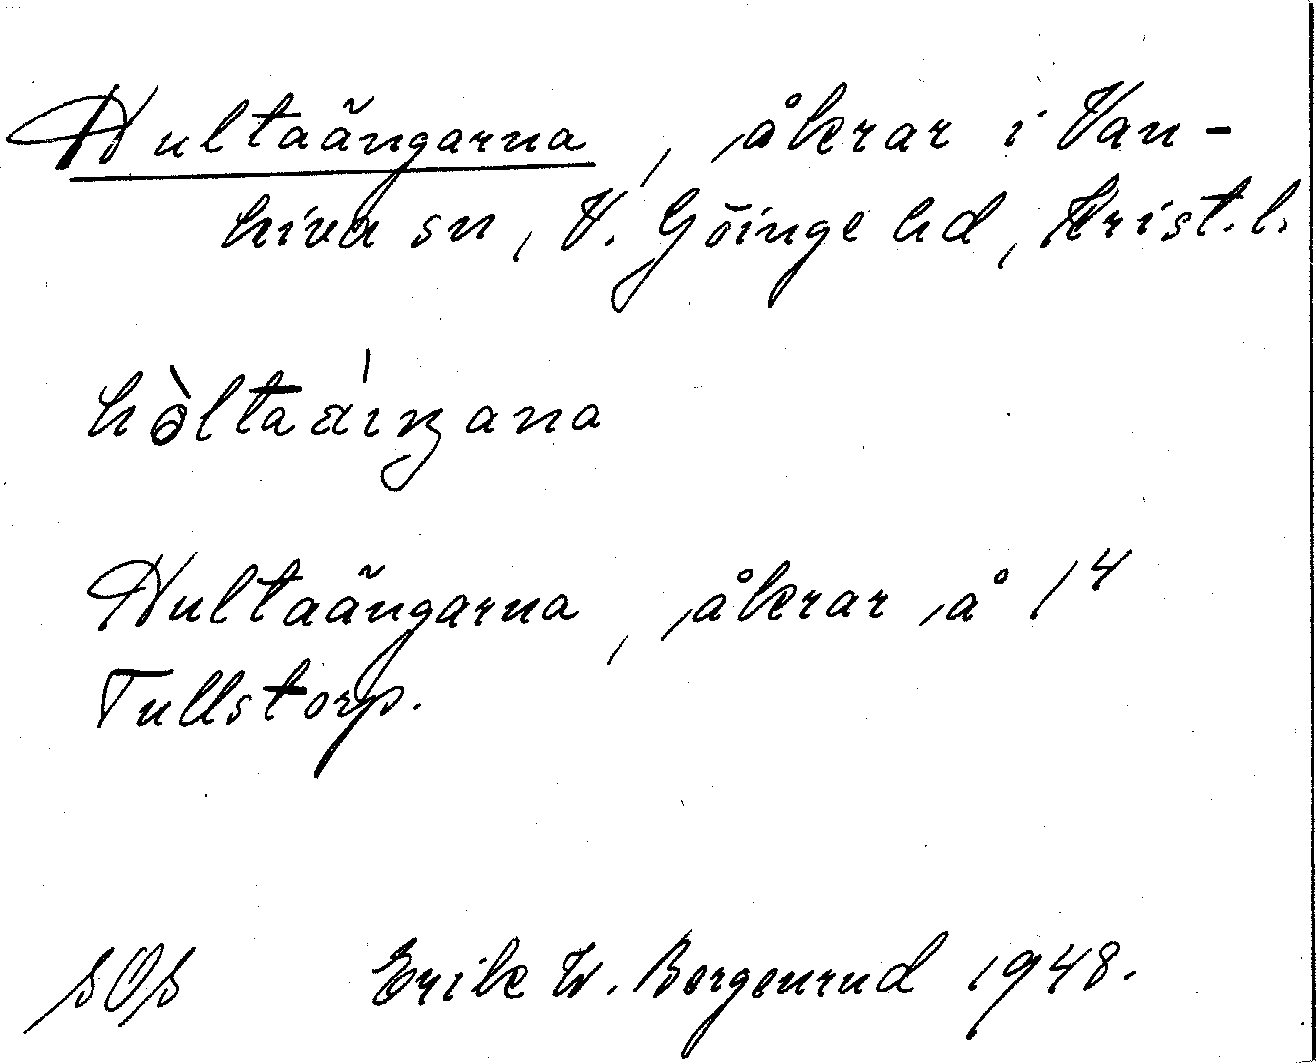 Hultaängarna, åkrar i Van-
kiva sn, V. Göinge hd, Krist. l.
hòltaáiŋana
Hultaängarna, åkrar å 1⁴
Tullstorp.
SOS Erik W. Bergenrud 1948.